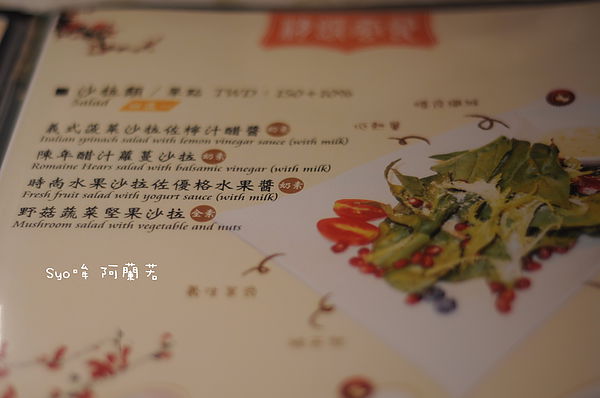 ■ 沙拉類／單點 TWD：150+10%
Salad
義式菠菜沙拉佐檸汁醋醬 奶素
Italian spinach salad with lemon vinegar sauce (with milk)
陳年醋汁蘿蔓沙拉 奶素
Romaine Hears salad with balsamic vinegar (with milk)
時尚水果沙拉佐優格水果醬 奶素
Fresh fruit salad with yogurt sauce (with milk)
野菇蔬菜堅果沙拉 全素
Mushroom salad with vegetable and nuts
Syo哞 阿蘭若